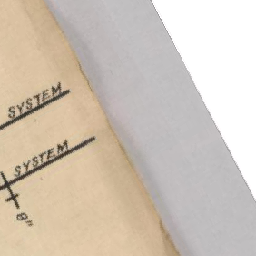 SYSTEM
SYSTEM
8"